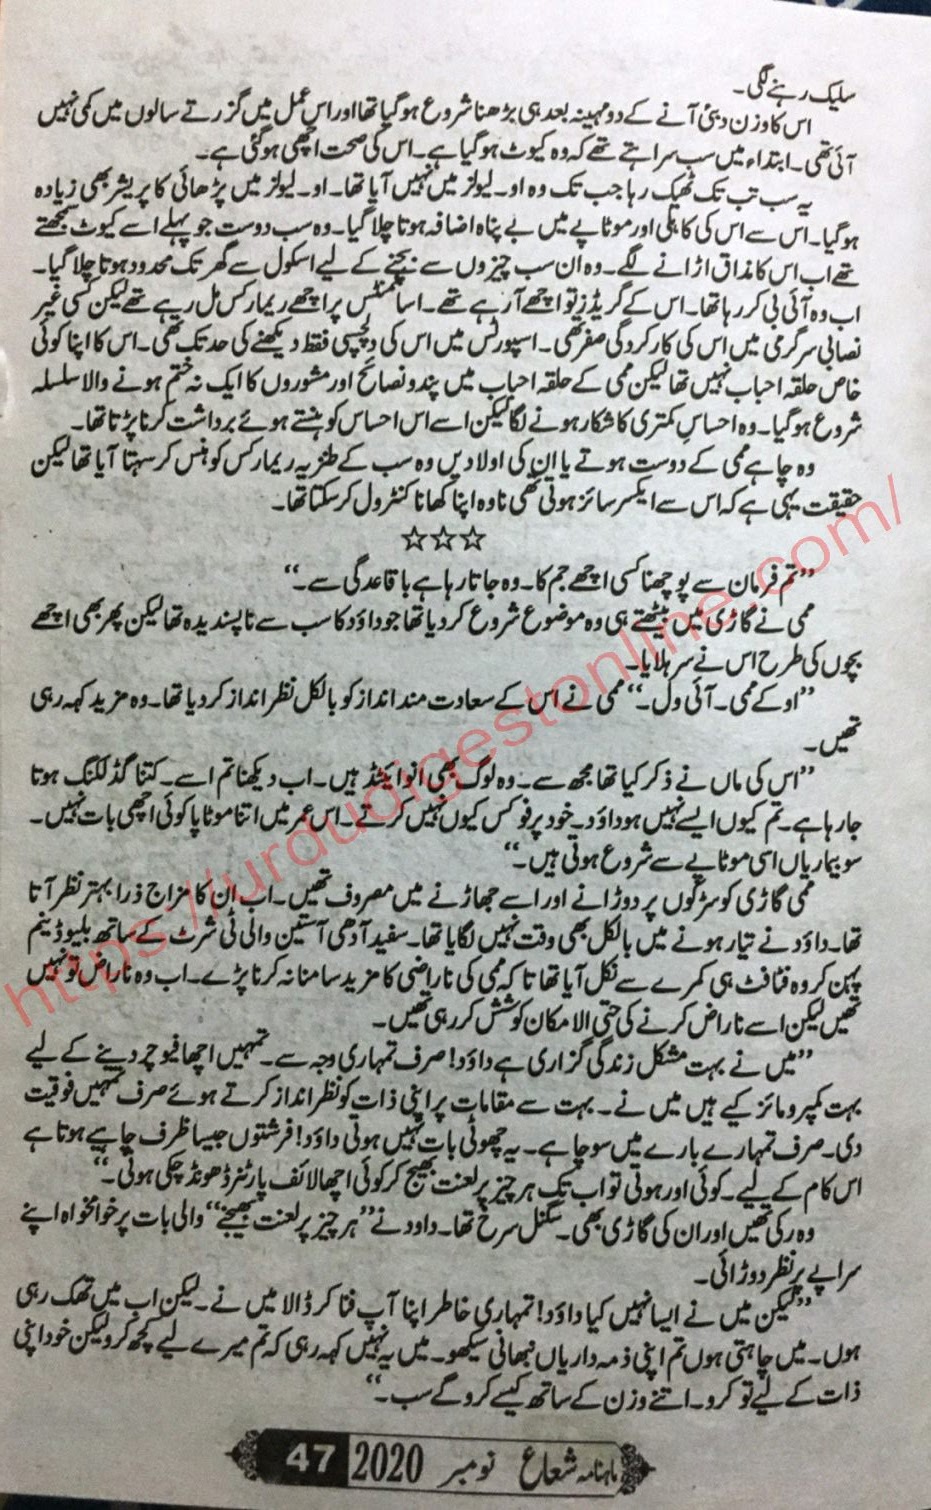 سلیک رہنے لگی۔
اس کا وزن دبئی آنے کے دو مہینہ بعد ہی بڑھنا شروع ہو گیا تھا اور اس عمل میں گزرتے سالوں میں کمی نہیں
آئی تھی۔ ابتداء میں سب سراہتے تھے کہ وہ کیوٹ ہو گیا ہے۔ اس کی صحت اچھی ہو گئی ہے۔
یہ سب تب تک ٹھیک رہا جب تک وہ او۔ لیولز میں نہیں آیا تھا۔ او۔ لیولز میں پڑھائی کا پریشر بھی زیادہ
ہو گیا۔ اس سے اس کی کاہلی اور موٹاپے میں بے پناہ اضافہ ہوتا چلا گیا۔ وہ سب دوست جو پہلے اسے کیوٹ سمجھتے
تھے اب اس کا مذاق اڑانے لگے۔ وہ ان سب چیزوں سے بچنے کے لیے اسکول سے گھر تک محدود ہوتا چلا گیا۔
اب وہ آئی بی کر رہا تھا۔ اس کے گریڈز تو اچھے آ رہے تھے۔ اسائمنٹس پر اچھے ریمارکس مل رہے تھے لیکن کسی غیر
نصابی سرگرمی میں اس کی کارکردگی صفر تھی۔ اسپورٹس میں اس کی دلچسپی فقط دیکھنے کی حد تک تھی۔ اس کا اپنا کوئی
خاص حلقہ احباب نہیں تھا لیکن ممی کے حلقہ احباب میں پند و نصائح اور مشوروں کا ایک نہ ختم ہونے والا سلسلہ
شروع ہو گیا۔ وہ احساسِ کمتری کا شکار ہونے لگا لیکن اسے اس احساس کو ہنستے ہوئے برداشت کرنا پڑتا تھا۔
وہ چاہے ممی کے دوست ہوتے یا ان کی اولادیں وہ سب کے طنزیہ ریمارکس کو ہنس کر سہتا آیا تھا لیکن
حقیقت یہی ہے کہ اس سے ایکسرسائز ہوتی تھی نا وہ اپنا کھانا کنٹرول کر سکتا تھا۔
☆☆☆
”تم فرمان سے پوچھنا کسی اچھے جم کا۔ وہ جاتا رہا ہے باقاعدگی سے۔“
ممی نے گاڑی میں بیٹھتے ہی وہ موضوع شروع کر دیا تھا جو داؤد کا سب سے ناپسندیدہ تھا لیکن پھر بھی اچھے
بچوں کی طرح اس نے سر ہلایا۔
”او کے ممی۔ آئی ول۔“ ممی نے اس کے سعادت مند انداز کو بالکل نظر انداز کر دیا تھا۔ وہ مزید کہہ رہی
تھیں۔
”اس کی ماں نے ذکر کیا تھا مجھ سے۔ وہ لوگ بھی انوائیٹڈ ہیں۔ اب دیکھنا تم اسے۔ کتنا گڈ لکنگ ہوتا
جا رہا ہے۔ تم کیوں ایسے نہیں ہو داؤد۔ خود پر فوکس کیوں نہیں کرتے۔ اس عمر میں اتنا موٹاپا کوئی اچھی بات نہیں۔
سو بیماریاں اسی موٹاپے سے شروع ہوتی ہیں۔“
ممی گاڑی کو سڑکوں پر دوڑانے اور اسے جھاڑنے میں مصروف تھیں۔ اب ان کا مزاج ذرا بہتر نظر آتا
تھا۔ داؤد نے تیار ہونے میں بالکل بھی وقت نہیں لگایا تھا۔ سفید آدھی آستین والی ٹی شرٹ کے ساتھ بلیو ڈینم
پہن کر وہ فٹافٹ ہی کمرے سے نکل آیا تھا تاکہ ممی کی ناراضی کا مزید سامنا نہ کرنا پڑے۔ اب وہ ناراض تو نہیں
تھیں لیکن اسے ناراض کرنے کی حتی الامکان کوشش کر رہی تھیں۔
”میں نے بہت مشکل زندگی گزاری ہے داؤد! صرف تمہاری وجہ سے۔ تمہیں اچھا فیوچر دینے کے لیے
بہت کمپرومائز کیے ہیں میں نے۔ بہت سے مقامات پر اپنی ذات کو نظر انداز کرتے ہوئے صرف تمہیں فوقیت
دی۔ صرف تمہارے بارے میں سوچا ہے۔ یہ چھوٹی بات نہیں ہوتی داؤد! فرشتوں جیسا ظرف چاہیے ہوتا ہے
اس کام کے لیے۔ کوئی اور ہوتی تو اب تک ہر چیز پر لعنت بھیج کر کوئی اچھا لائف پارٹنر ڈھونڈ چکی ہوتی۔“
وہ رکی تھیں اور ان کی گاڑی بھی۔ سگنل سرخ تھا۔ داود نے ”ہر چیز پر لعنت بھیجنے“ والی بات پر خوامخواہ اپنے
سراپے پر نظر دوڑائی۔
”لیکن میں نے ایسا نہیں کیا داؤد! تمہاری خاطر اپنا آپ فنا کر ڈالا میں نے۔ لیکن اب میں تھک رہی
ہوں۔ میں چاہتی ہوں تم اپنی ذمہ داریاں نبھانی سیکھو۔ میں یہ نہیں کہہ رہی کہ تم میرے لیے کچھ کرو لیکن خود اپنی
ذات کے لیے تو کرو۔ اتنے وزن کے ساتھ کیسے کرو گے سب۔“
ماہنامہ شعاع نومبر 2020 47
https://urdudigestonline.com/